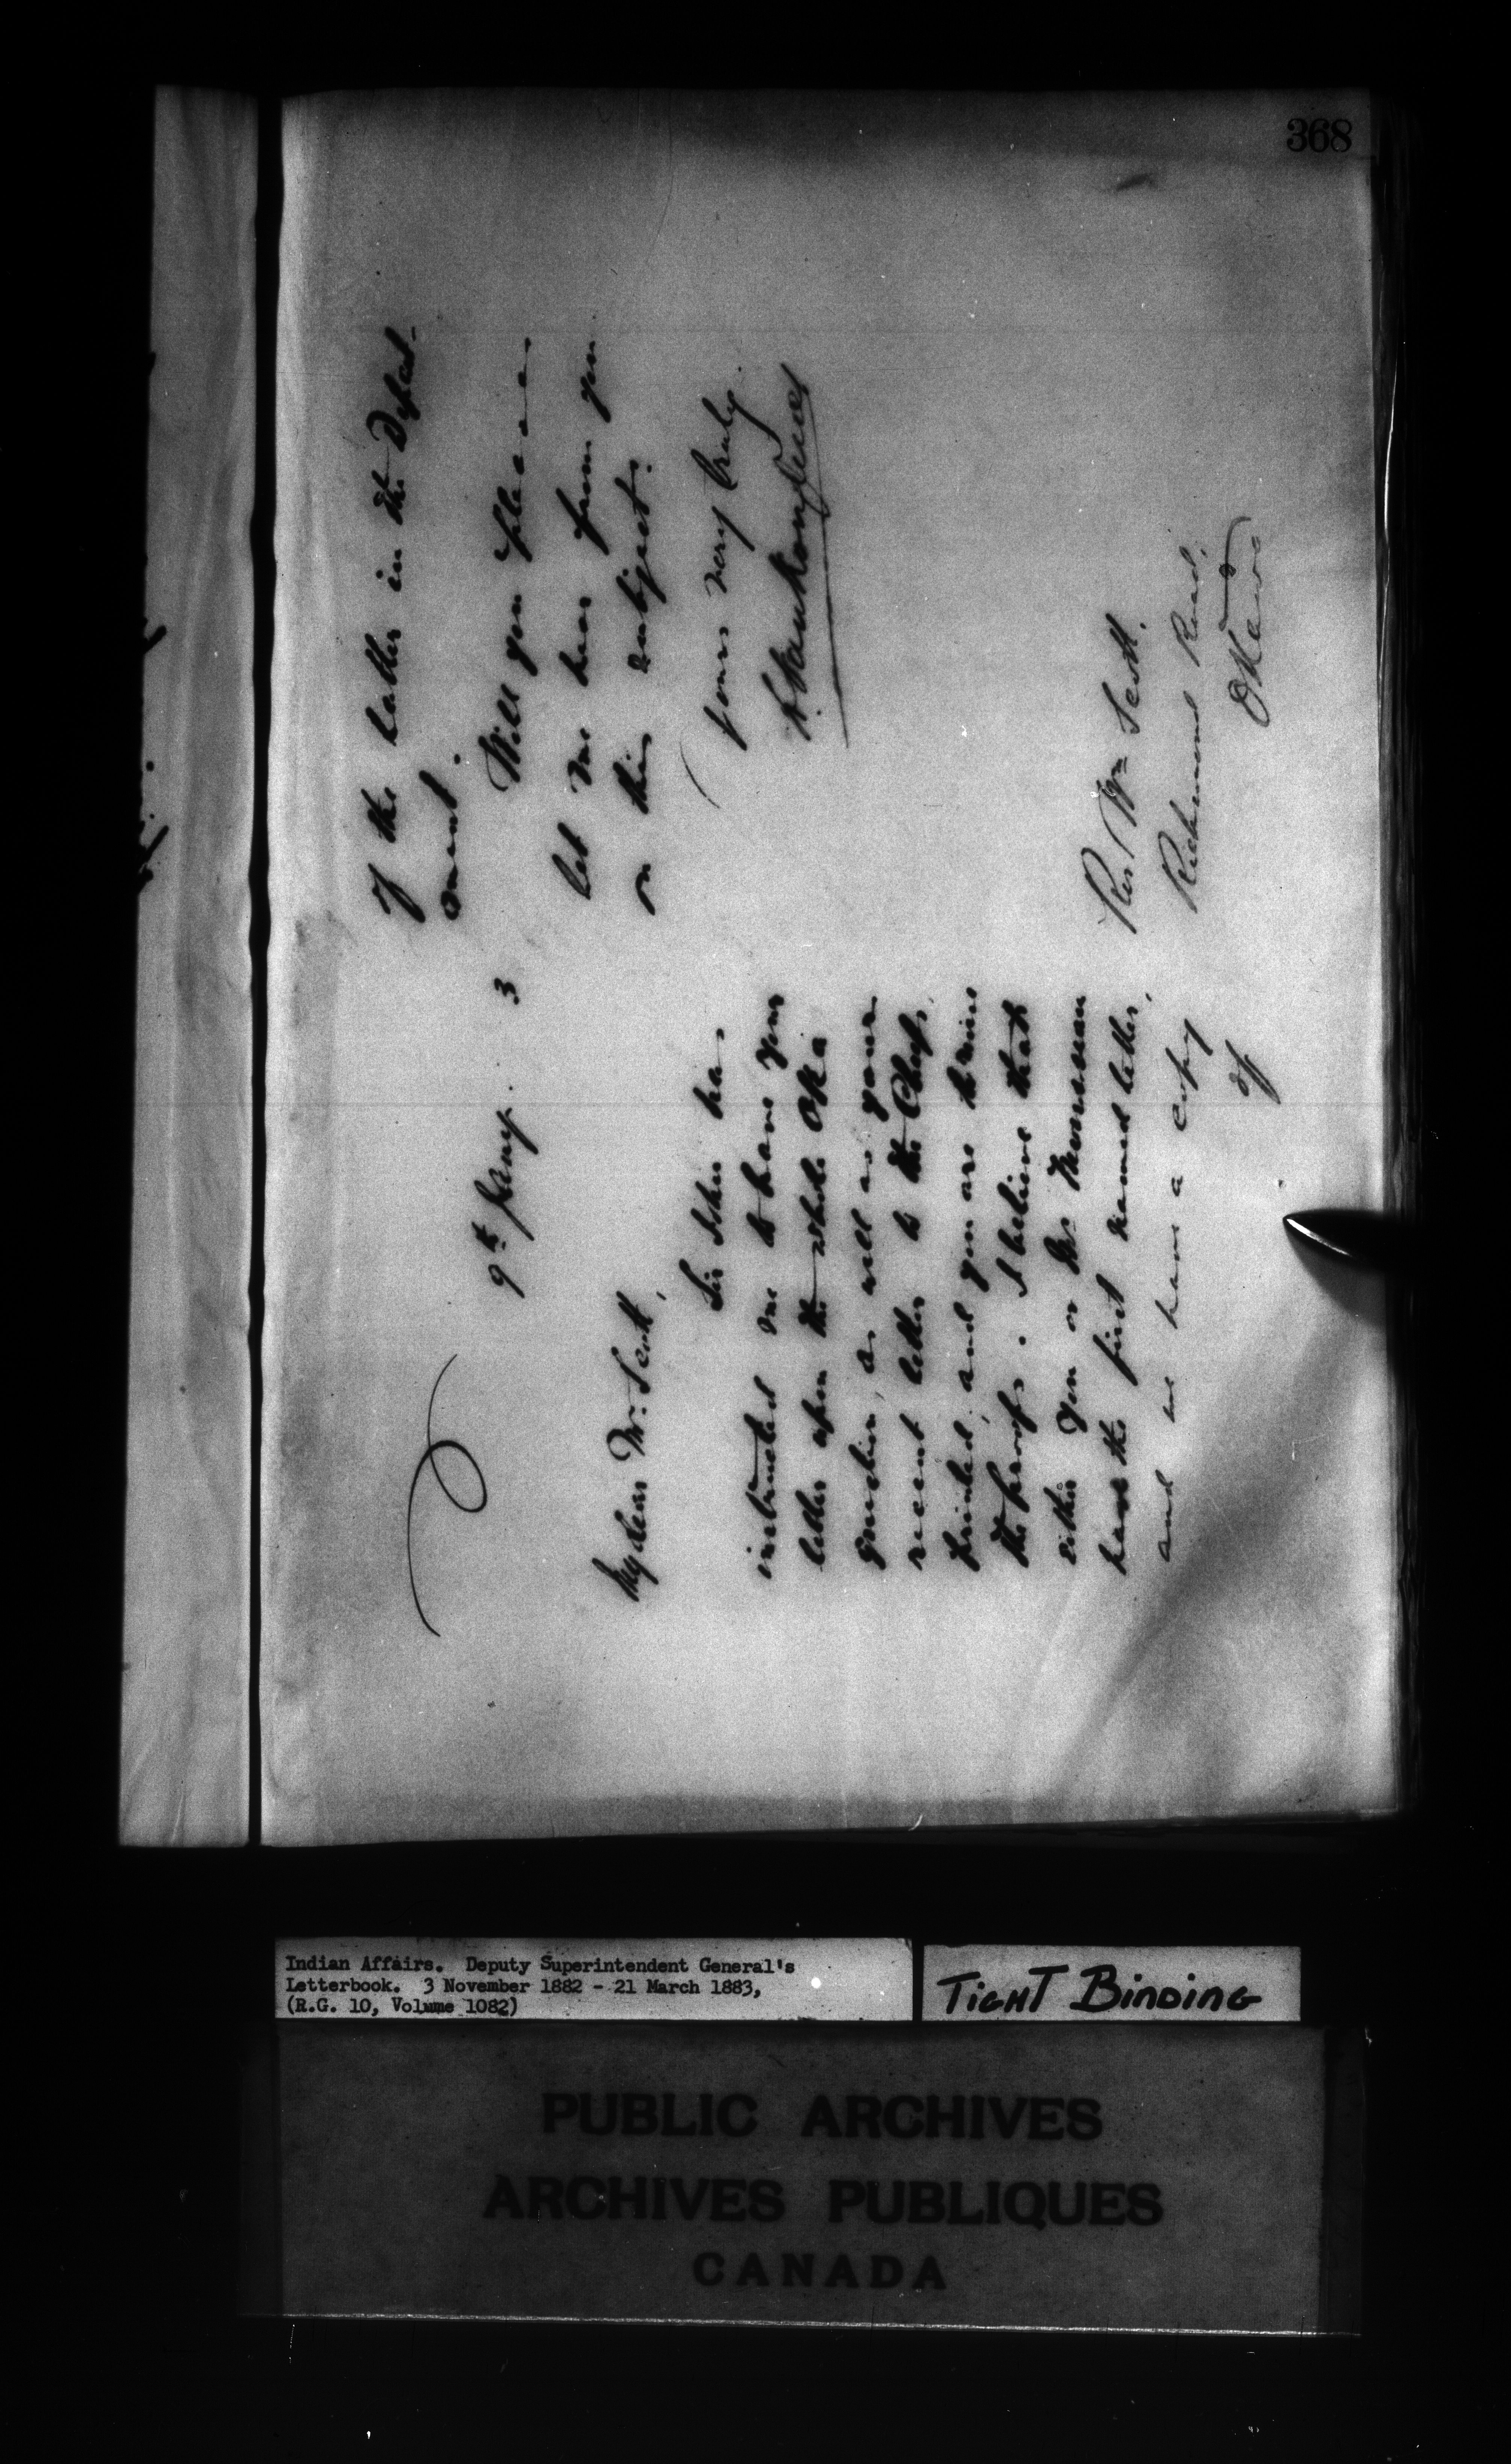 368
9th Jany. 3
My dear Mr. Scott,
Sir John has
instructed me to have your
letter upon the whole Oka
question, as well as your
recent letter to the Chiefs,
printed, and you are to revise
the proofs. I believe that
either you or Mr.
have the first named letter,
and we have a copy
of
of the latter in the Depart-
ment.
Will you please
let me hear from you
on this subject.
Yours very truly.
L. Vankoughnet
Rev. Wm Scott.
Richmond Road,
Ottawa
Indian Affairs. Deputy Superintendent General's
Letterbook. 3 November 1882 - 21 March 1883,
(R.G. 10, Volume 1082)
TIGHT BINDING
PUBLIC ARCHIVES
ARCHIVES PUBLIQUES
CANADA